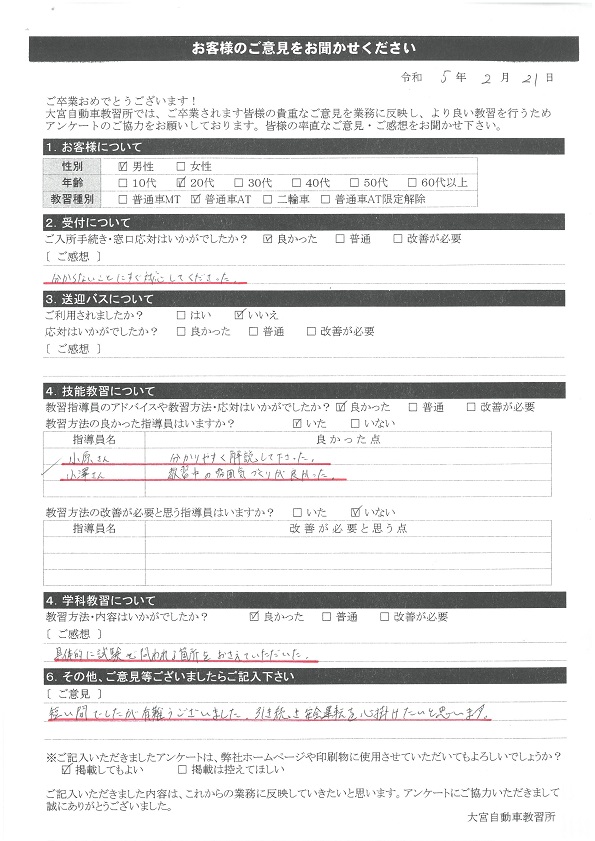 お客様のご意見をお聞かせください
令和 5 年 2 月 21 日
ご卒業おめでとうございます！
大宮自動車教習所では、ご卒業されます皆様の貴重なご意見を業務に反映し、より良い教習を行うため
アンケートのご協力をお願いしております。皆様の率直なご意見・ご感想をお聞かせ下さい。
1. お客様について
性別 ☑ 男性 □ 女性
年齢 □ 10代 ☑ 20代 □ 30代 □ 40代 □ 50代 □ 60代以上
教習種別 □ 普通車MT ☑ 普通車AT □ 二輪車 □ 普通車AT限定解除
2. 受付について
ご入所手続き・窓口応対はいかがでしたか？ ☑ 良かった □ 普通 □ 改善が必要
[ ご感想 ]
分からないことにすぐ対応してくださった。
3. 送迎バスについて
ご利用されましたか？ □ はい ☑ いいえ
応対はいかがでしたか？ □ 良かった □ 普通 □ 改善が必要
[ ご感想 ]
4. 技能教習について
教習指導員のアドバイスや教習方法・応対はいかがでしたか？ ☑ 良かった □ 普通 □ 改善が必要
教習方法の良かった指導員はいますか？ ☑ いた □ いない
指導員名 良かった点
小原さん 分かりやすく解説して下さった。
小澤さん 教習中の雰囲気づくりが良かった。
教習方法の改善が必要と思う指導員はいますか？ □ いた ☑ いない
指導員名 改善が必要と思う点
4. 学科教習について
教習方法・内容はいかがでしたか？ ☑ 良かった □ 普通 □ 改善が必要
[ ご感想 ]
具体的に試験で問われる箇所をおさえていただいた。
6. その他、ご意見等ございましたらご記入下さい
[ ご意見 ]
短い間でしたが有難うございました。引き続き安全運転を心掛けたいと思います。
※ご記入いただきましたアンケートは、弊社ホームページや印刷物に使用させていただいてもよろしいでしょうか？
☑ 掲載してもよい □ 掲載は控えてほしい
ご記入いただきました内容は、これからの業務に反映していきたいと思います。アンケートにご協力いただきまして
誠にありがとうございました。
大宮自動車教習所